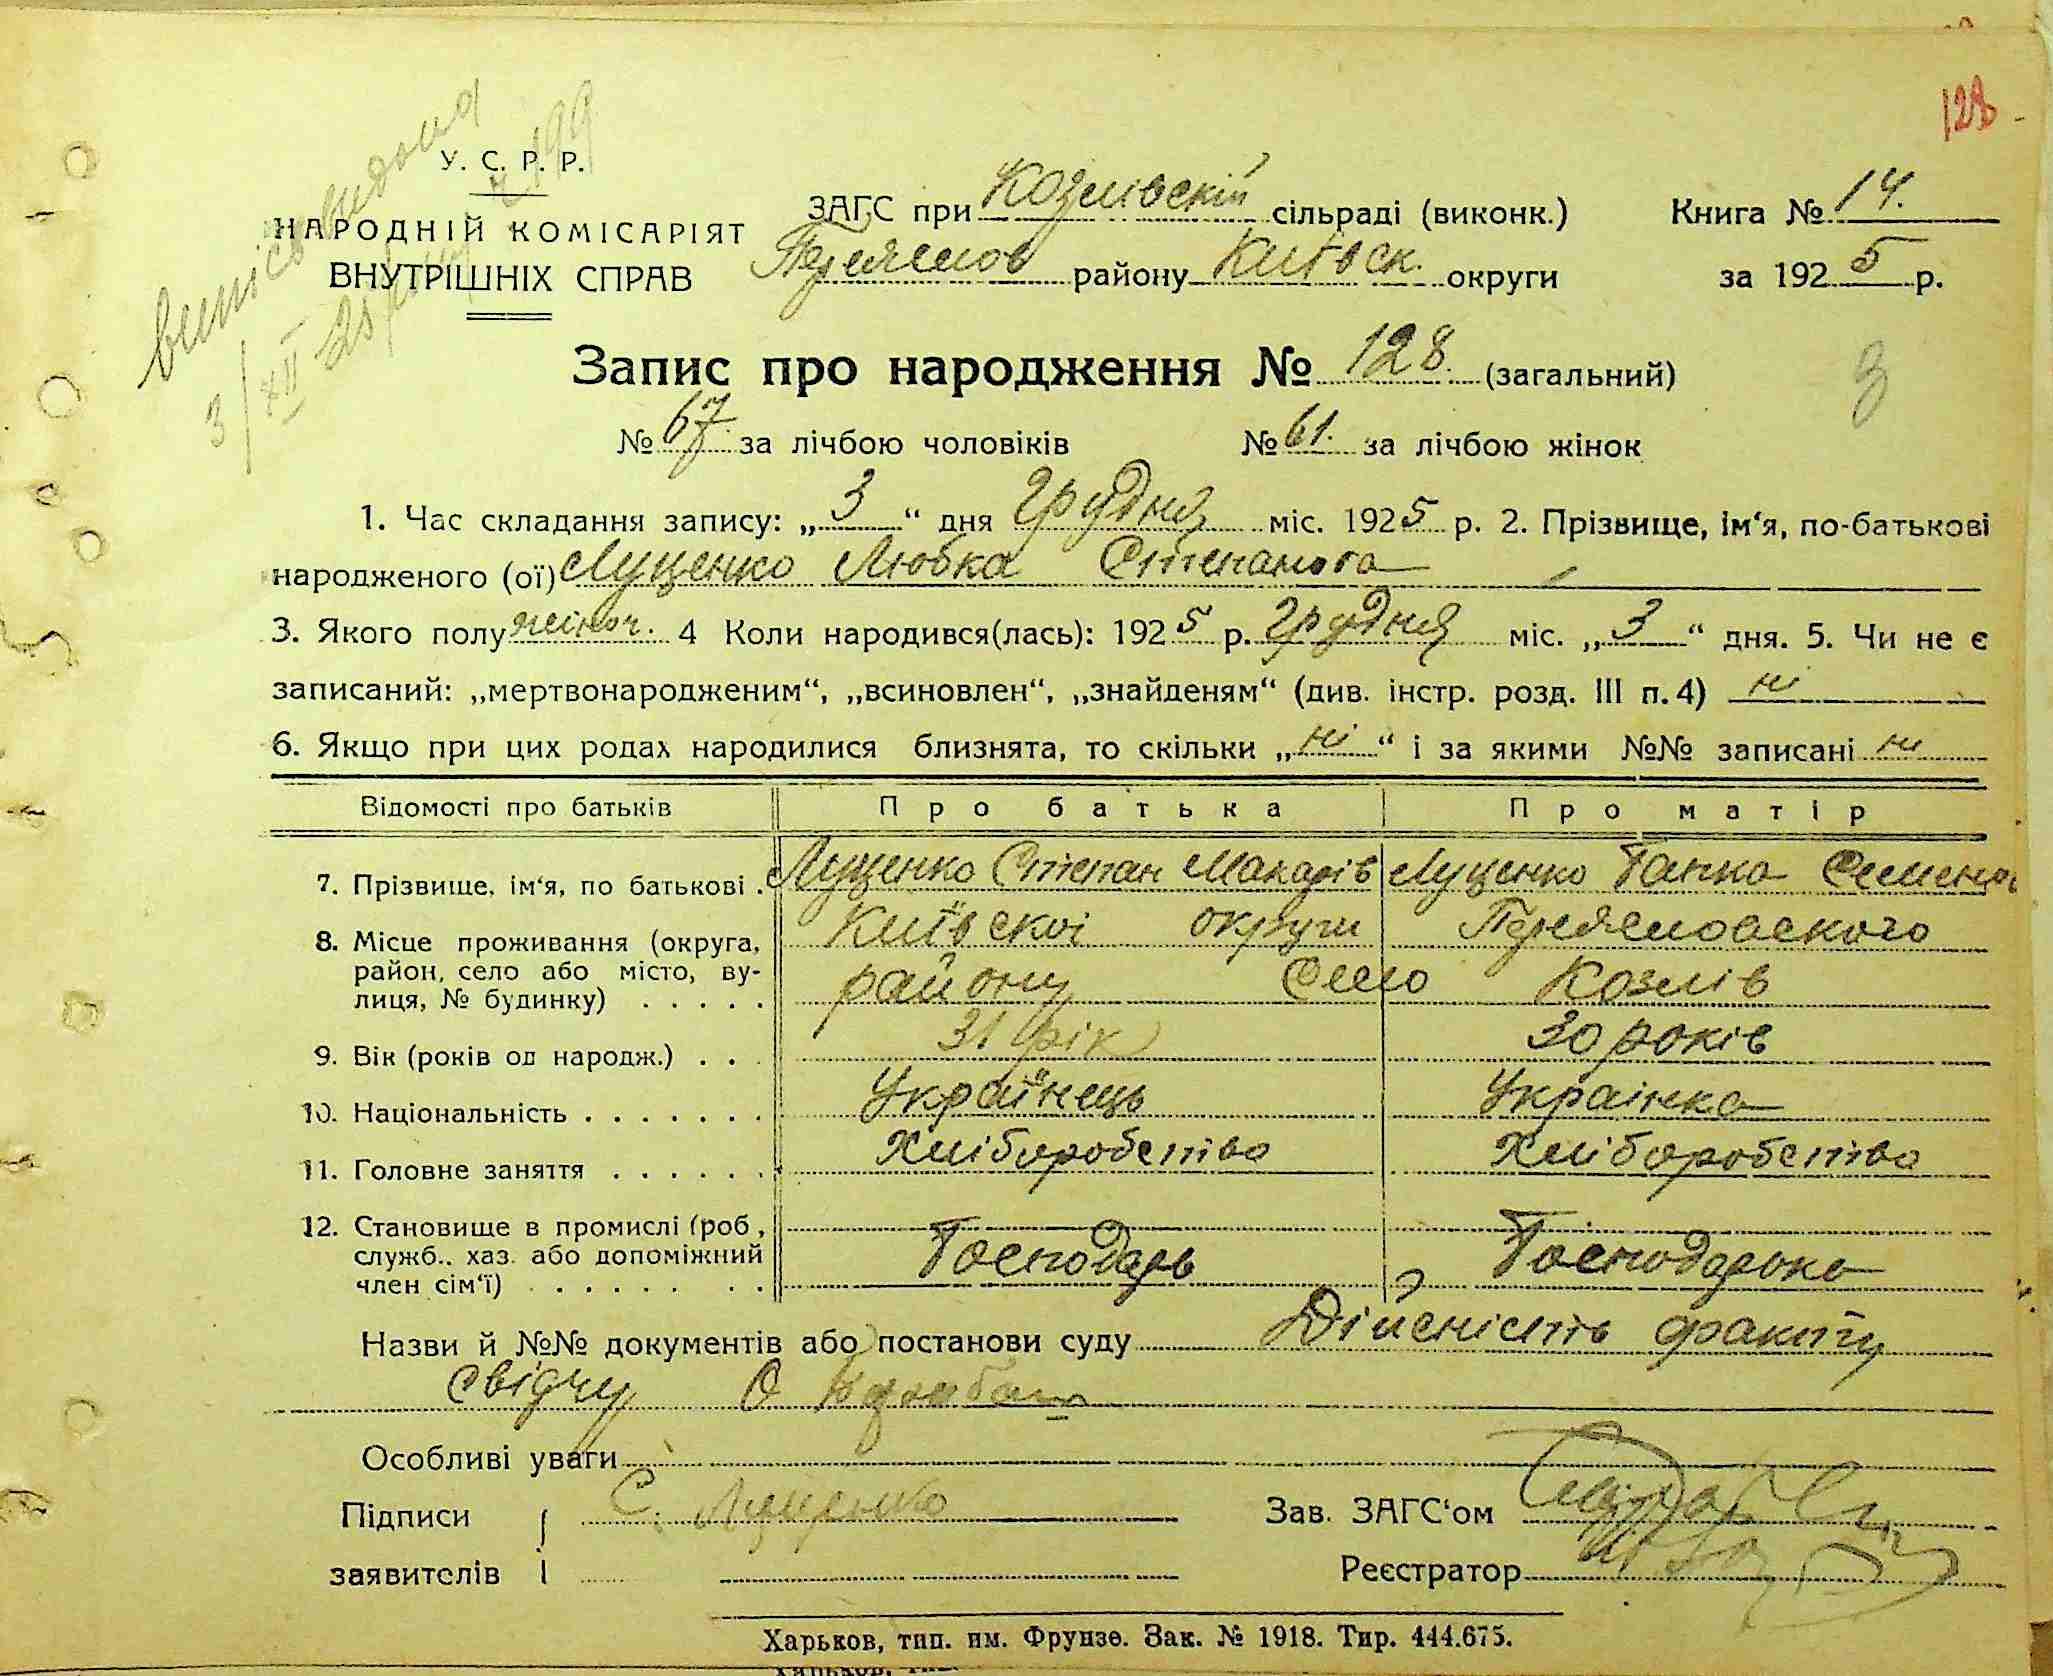 128
У. С. Р. Р.
НАРОДНІЙ КОМІСАРІЯТ
ВНУТРІШНІХ СПРАВ
випісь видана
3/XII 25 р. № 199
ЗАГС при Козлівскій сільраді (виконк.) Книга № 14.
Переяслов району Київск. округи за 1925 р.
Запис про народження № 128. (загальний)
3
№ 67. за лічбою чоловіків № 61. за лічбою жінок
1. Час складання запису: „3“ дня Грудня міс. 1925 р. 2. Прізвище, ім‘я, по-батькові
народженого (ої) Луценко Любка Степанова
3. Якого полу жіноч. 4 Коли народився(лась): 1925 р. Грудня міс. „3“ дня. 5. Чи не є
записаний: „мертвонародженим“, „всиновлен“, „знайденям“ (див. інстр. розд. III п. 4) ні
6. Якщо при цих родах народилися близнята, то скільки „ні“ і за якими №№ записані ні
Відомості про батьків Про батька Про матір
7. Прізвище, ім‘я, по батькові . Луценко Степан Макарів Луценко Ганка Семено
8. Місце проживання (округа, Київскої округи Переясловского
район, село або місто, ву- району Село Козлів
лиця, № будинку) . . . . .
9. Вік (років од народж.) . . . 31 рік 30 років
10. Національність . . . . . . . Українець Украінка
11. Головне заняття . . . . . . Хліборобство Хліборобство
12. Становище в промислі (роб.,
служб., хаз. або допоміжний Господарь Господарька
член сім‘ї) . . . . . . . .
Назви й №№ документів або постанови суду Дійсність факту
свідчу О
Особливі уваги
Підписи С. Луценко Зав. ЗАГС‘ом
заявителів Реєстратор
Харьков, тип. им. Фрунзе. Зак. № 1918. Тир. 444.675.